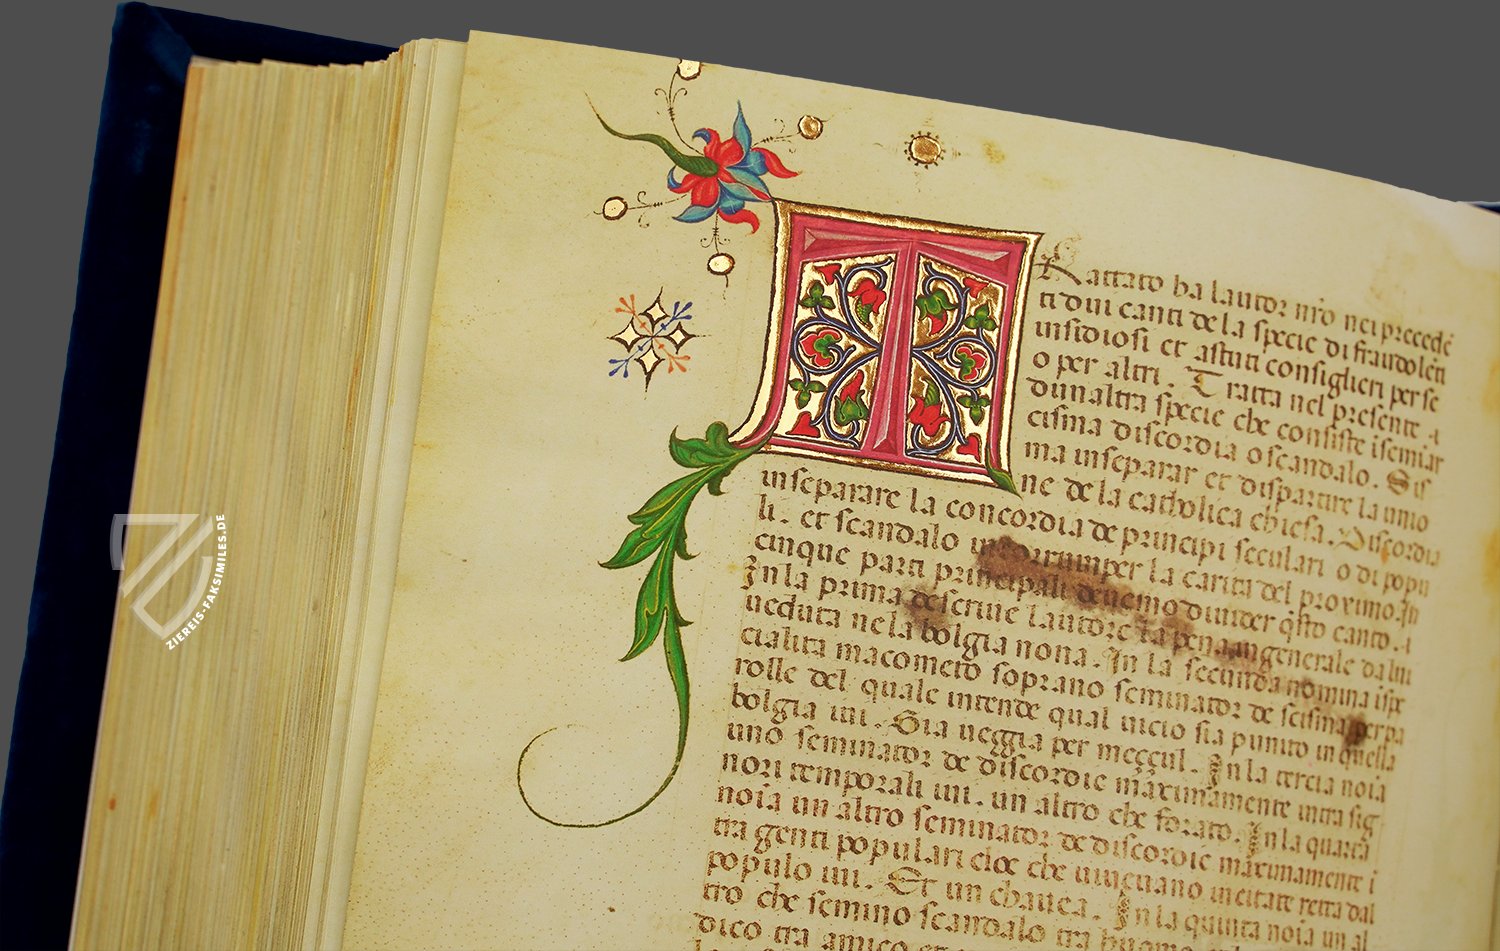 T Rattato ha lautor nr̃o nei precedẽ
ti dui canti de la specie di fraudolẽti
insidiosi et astuti consiglieri per se
o per altri. Tratta nel presente .i
dunaltra specie che consiste ĩsemiar
cisma discordia o scandalo. Sis
ma inseparar et dispartire la unio
ne de la catholica chiesa. Discordia
inseparare la concordia de principi seculari o di popu
li. et scandalo incorrumper la carita del proximo. In
cinque parti principali deuemo diuider q̃sto canto. .i
In la prima descriue lautore la pena in generale da lui
ueduta ne la bolgia nona. In la secunda nomina ĩspe
cialita macometo soprano seminator de scisma per pa
rolle del quale intende qual uicio sia punito in quella
bolgia iui. Gia ueggia per meççul. In la tercia noĩa
uno seminator de discordie mãximamente intra sig
nori temporali iui. un altro che forato. In la quarta
noĩa un altro seminator de discordie maximamente i
tra genti populari cioe che uiueuano in citate retta dal
populo iui. Et un chauea. In la quinta noĩa un al
tro che semino scandalo tra
dico tra amico et
ZIEREIS-FAKSIMILES.DE